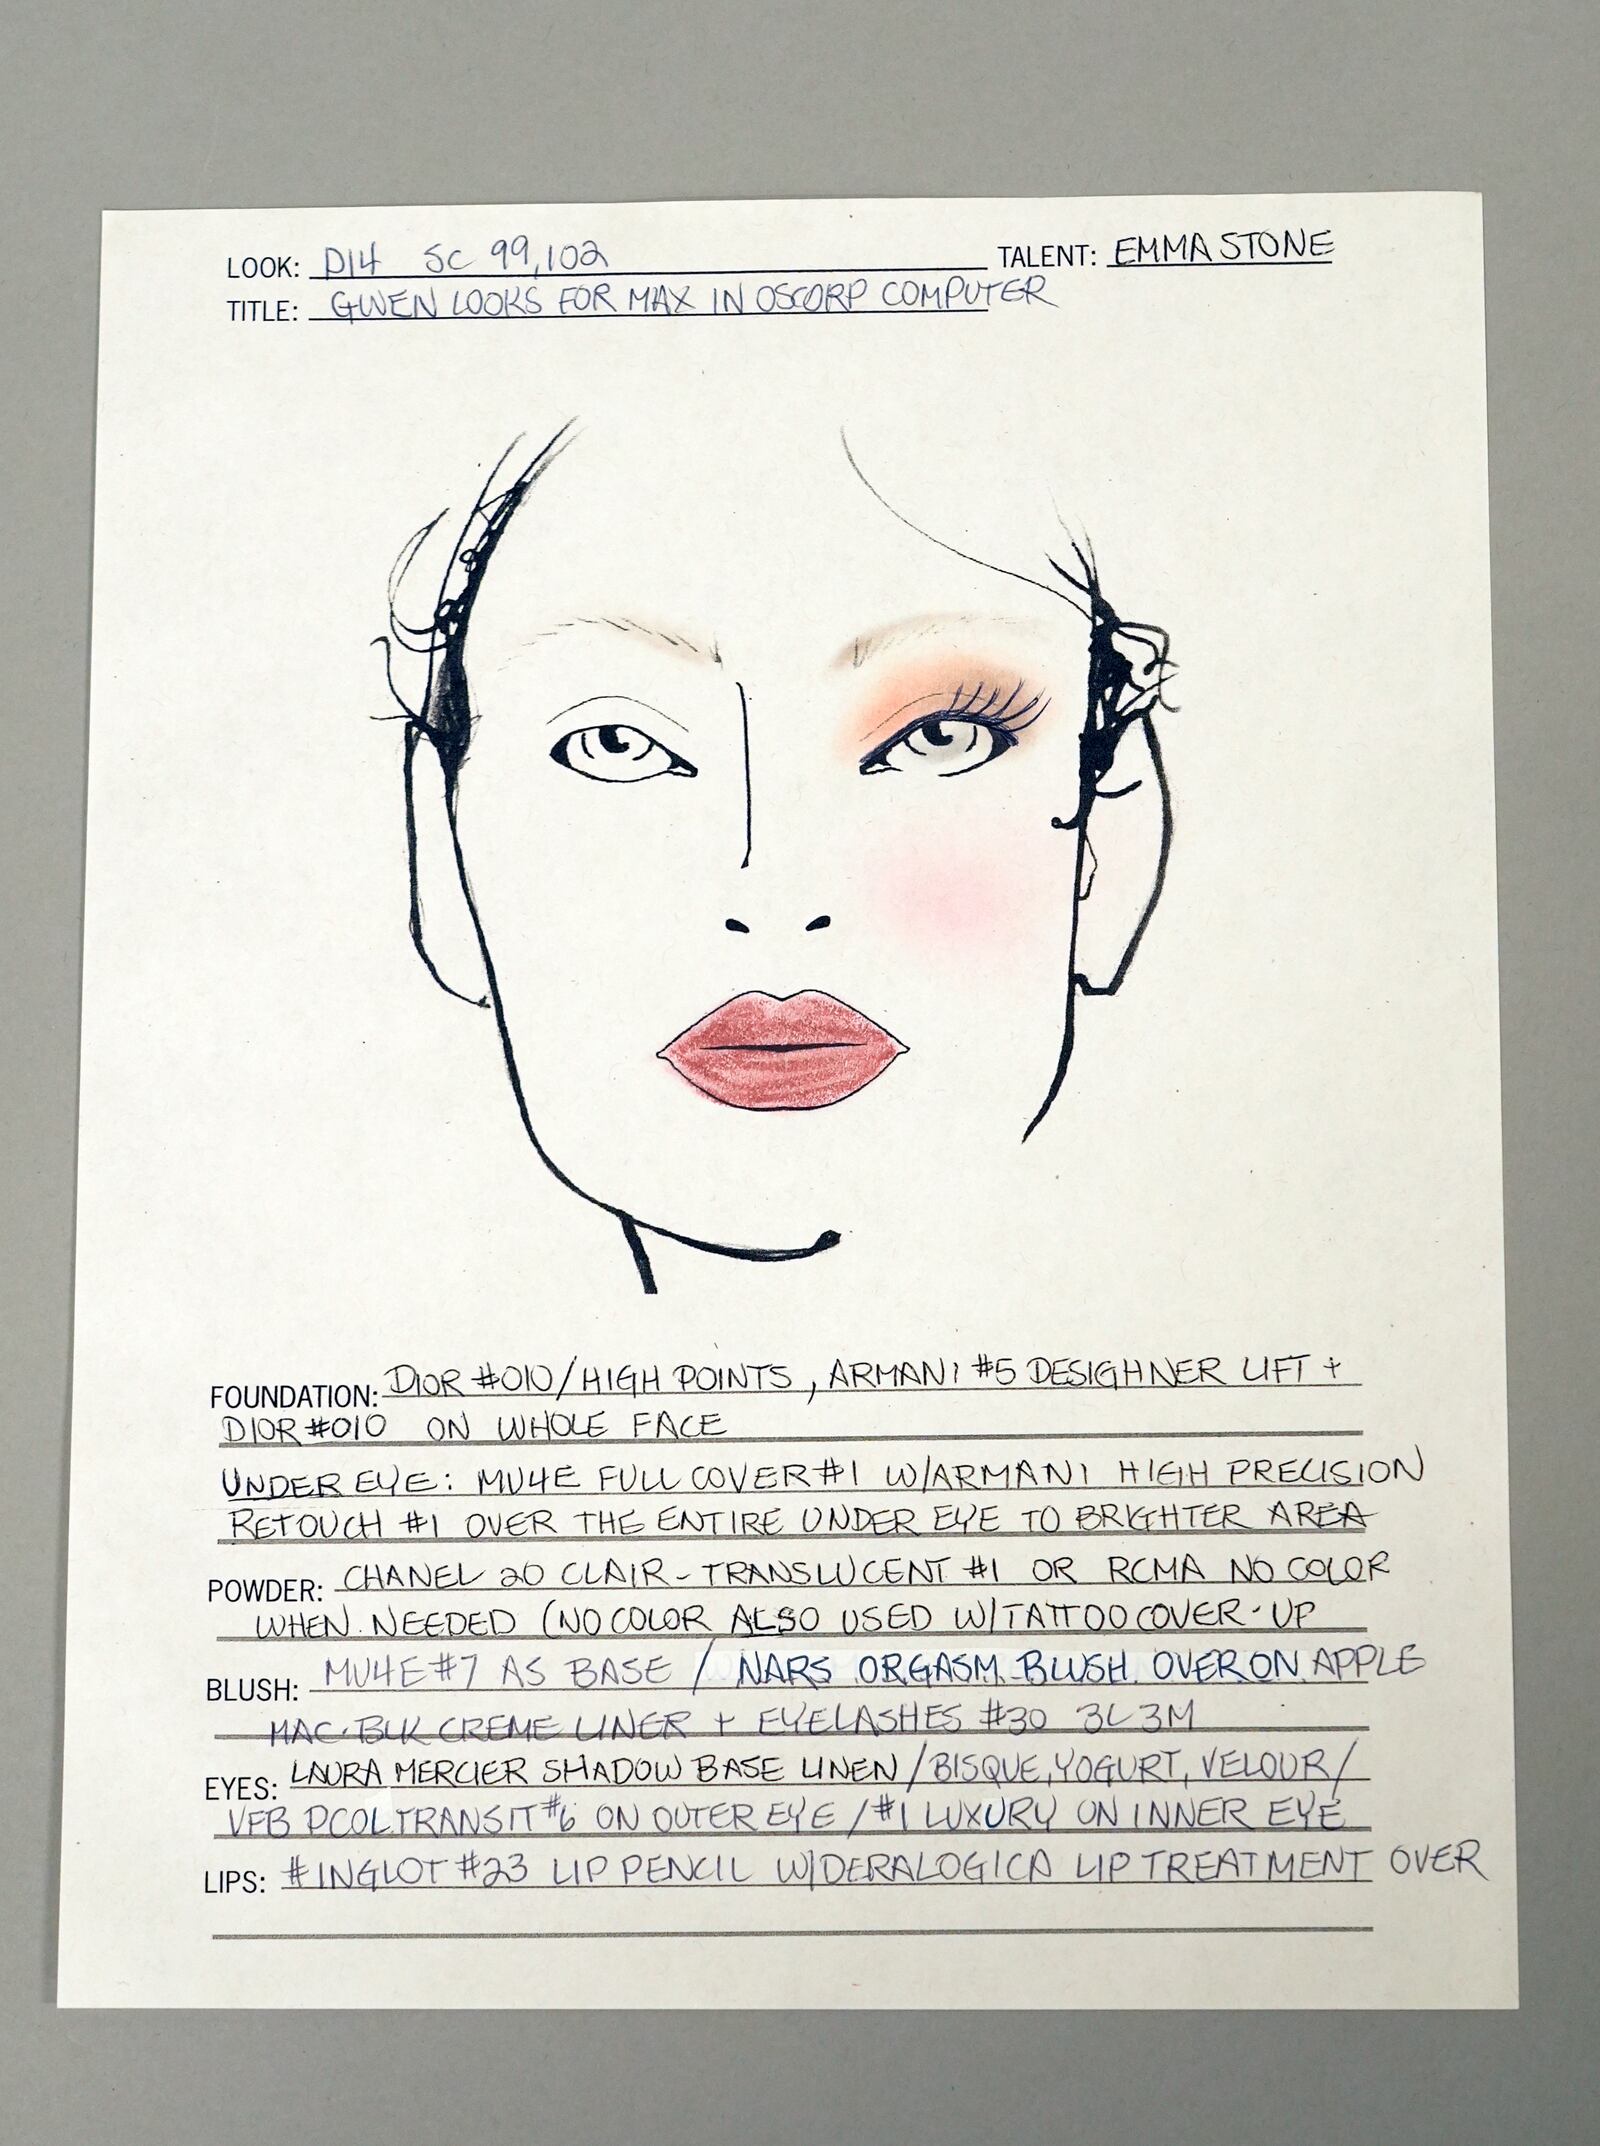 LOOK: D14 SC 99,102 TALENT: EMMA STONE
TITLE: GWEN LOOKS FOR MAX IN OSCORP COMPUTER
FOUNDATION: DIOR #010/HIGH POINTS, ARMANI #5 DESIGHNER LIFT +
DIOR #010 ON WHOLE FACE
UNDER EYE: MU4E FULL COVER #1 W/ARMANI HIGH PRECISION
RETOUCH #1 OVER THE ENTIRE UNDER EYE TO BRIGHTER AREA
POWDER: CHANEL 20 CLAIR - TRANSLUCENT #1 OR RCMA NO COLOR
WHEN NEEDED (NO COLOR ALSO USED W/TATTOO COVER-UP
BLUSH: MU4E #7 AS BASE / NARS ORGASM BLUSH OVER ON APPLE
MAC BLK CREME LINER + EYELASHES #30 3L 3M
EYES: LAURA MERCIER SHADOW BASE LINEN / BISQUE, YOGURT, VELOUR /
VFB PCOL TRANSIT #6 ON OUTER EYE / #1 LUXURY ON INNER EYE
LIPS: #INGLOT #23 LIP PENCIL W/DERALOGICA LIP TREATMENT OVER